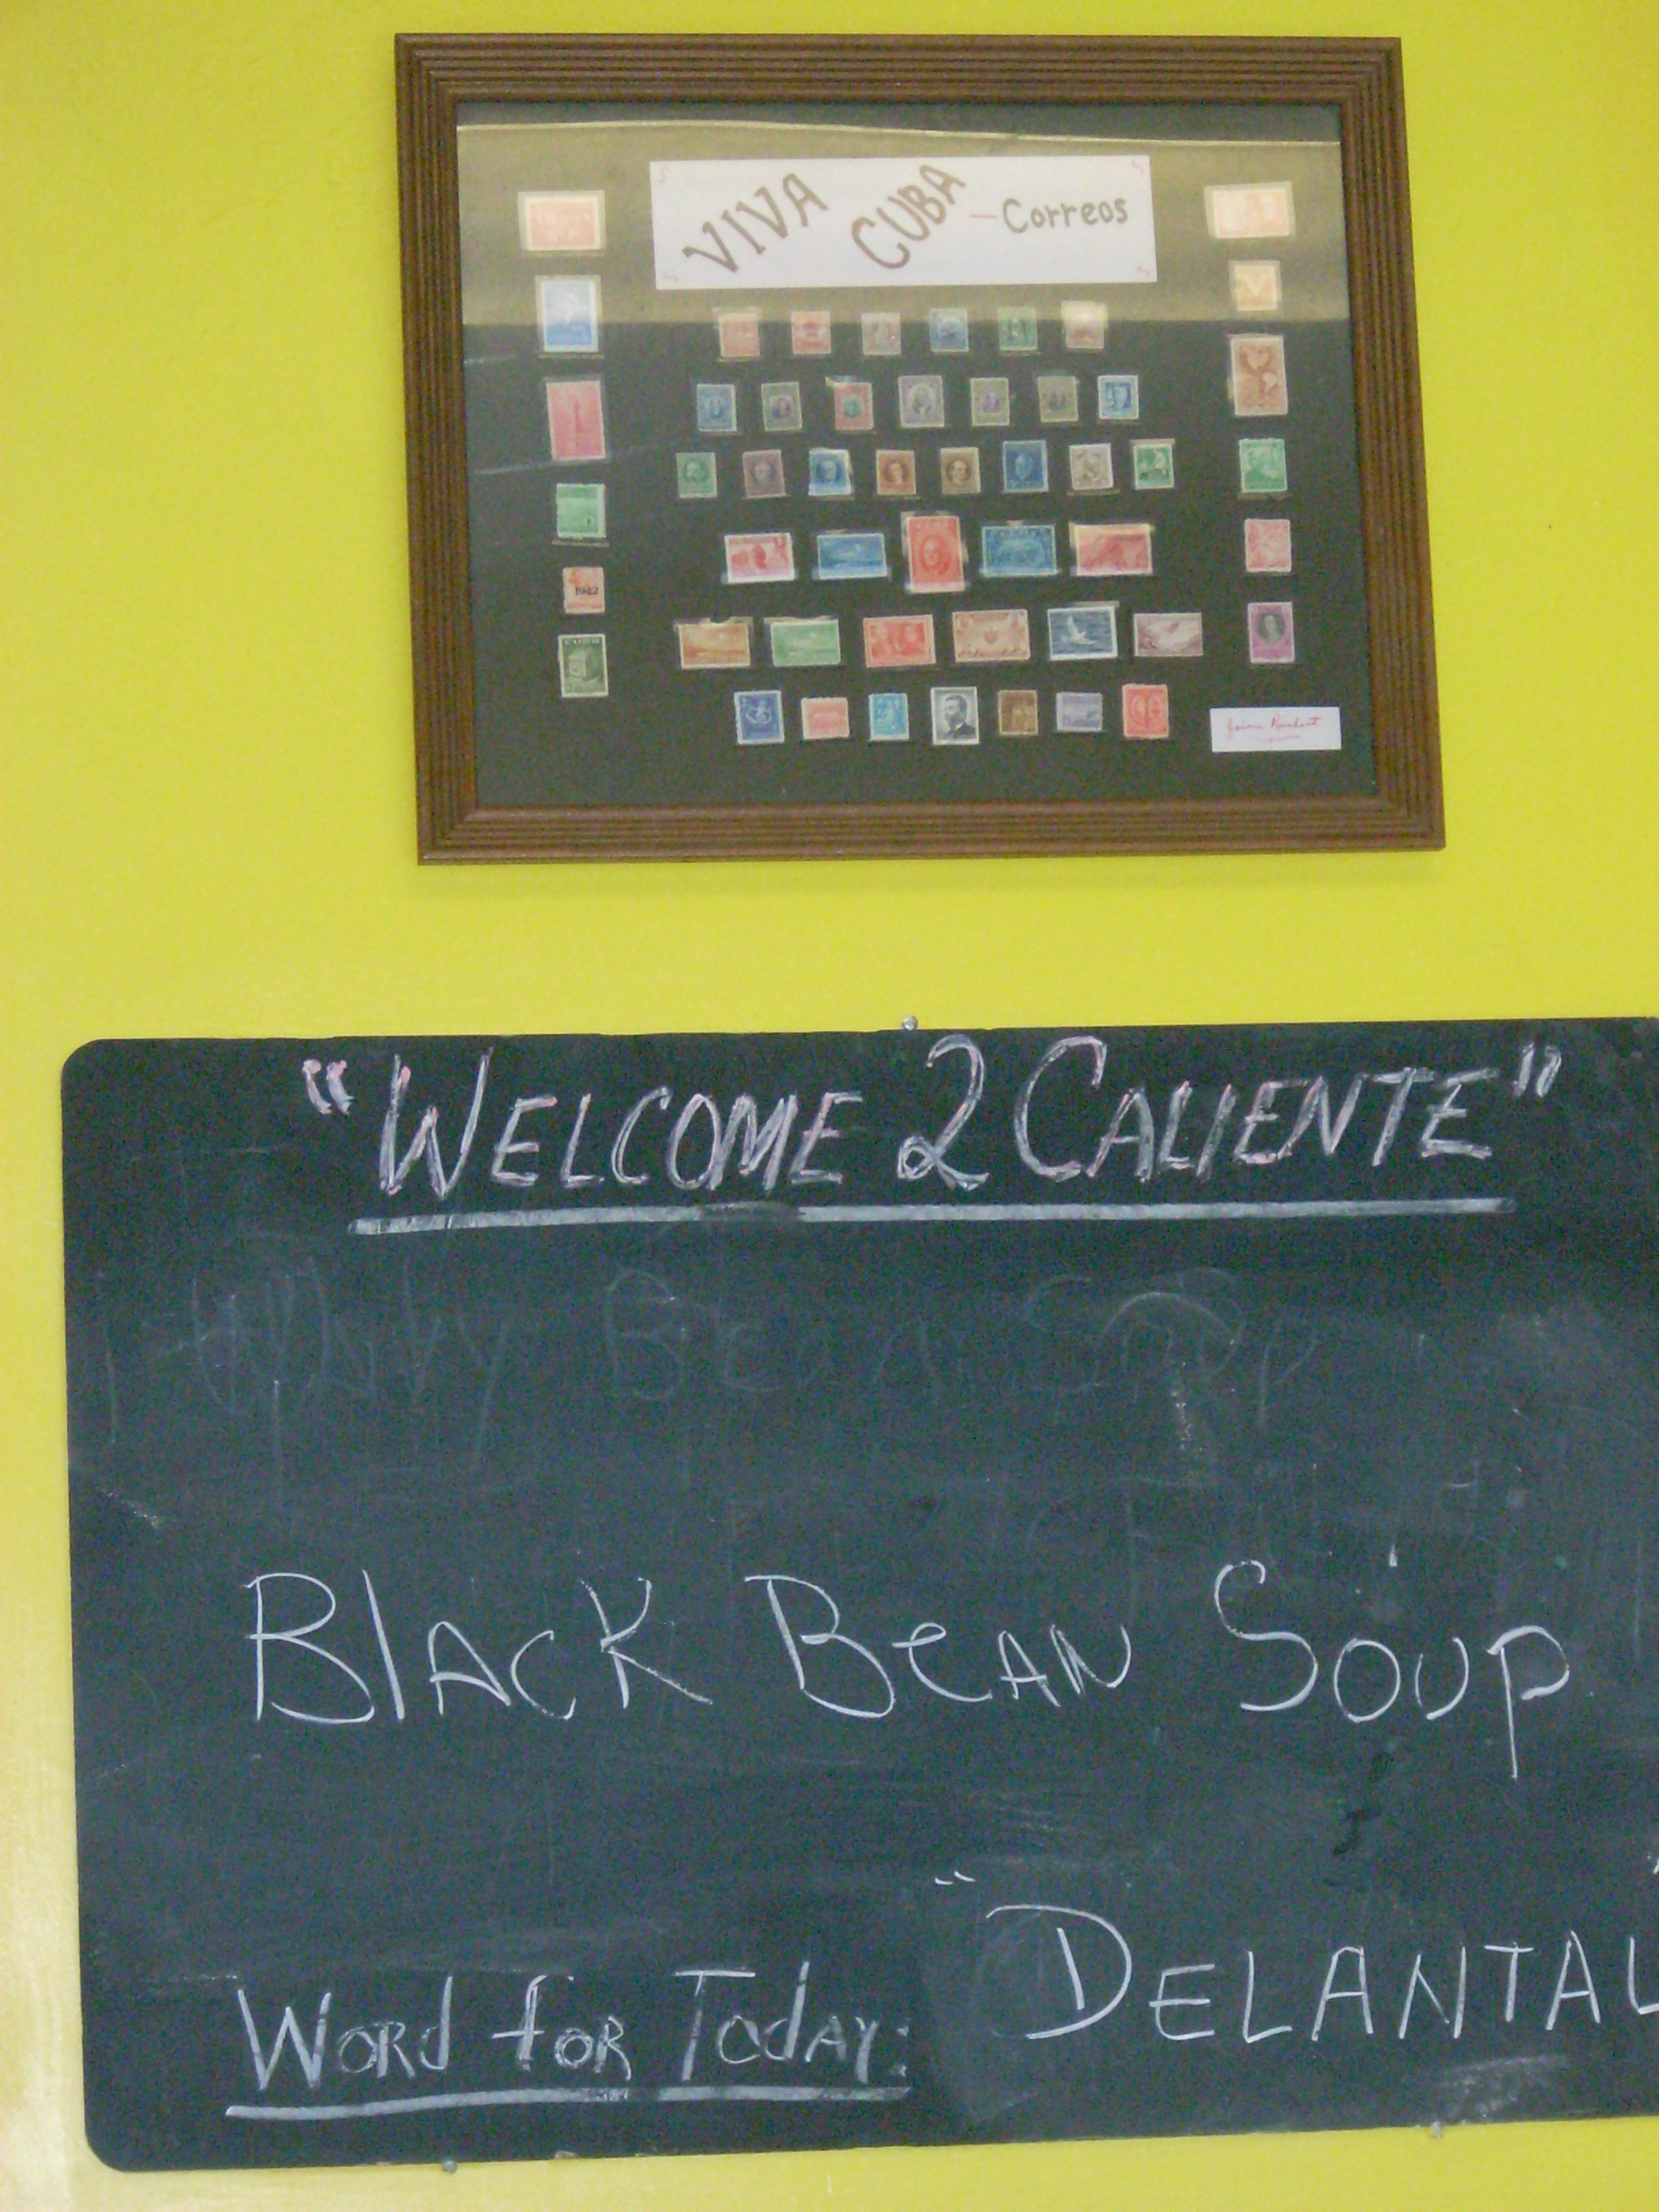 VIVA CUBA - Correos
"WELCOME 2 CALIENTE"
BLACK BEAN SOUP
WORD FOR TODAY: "DELANTAL